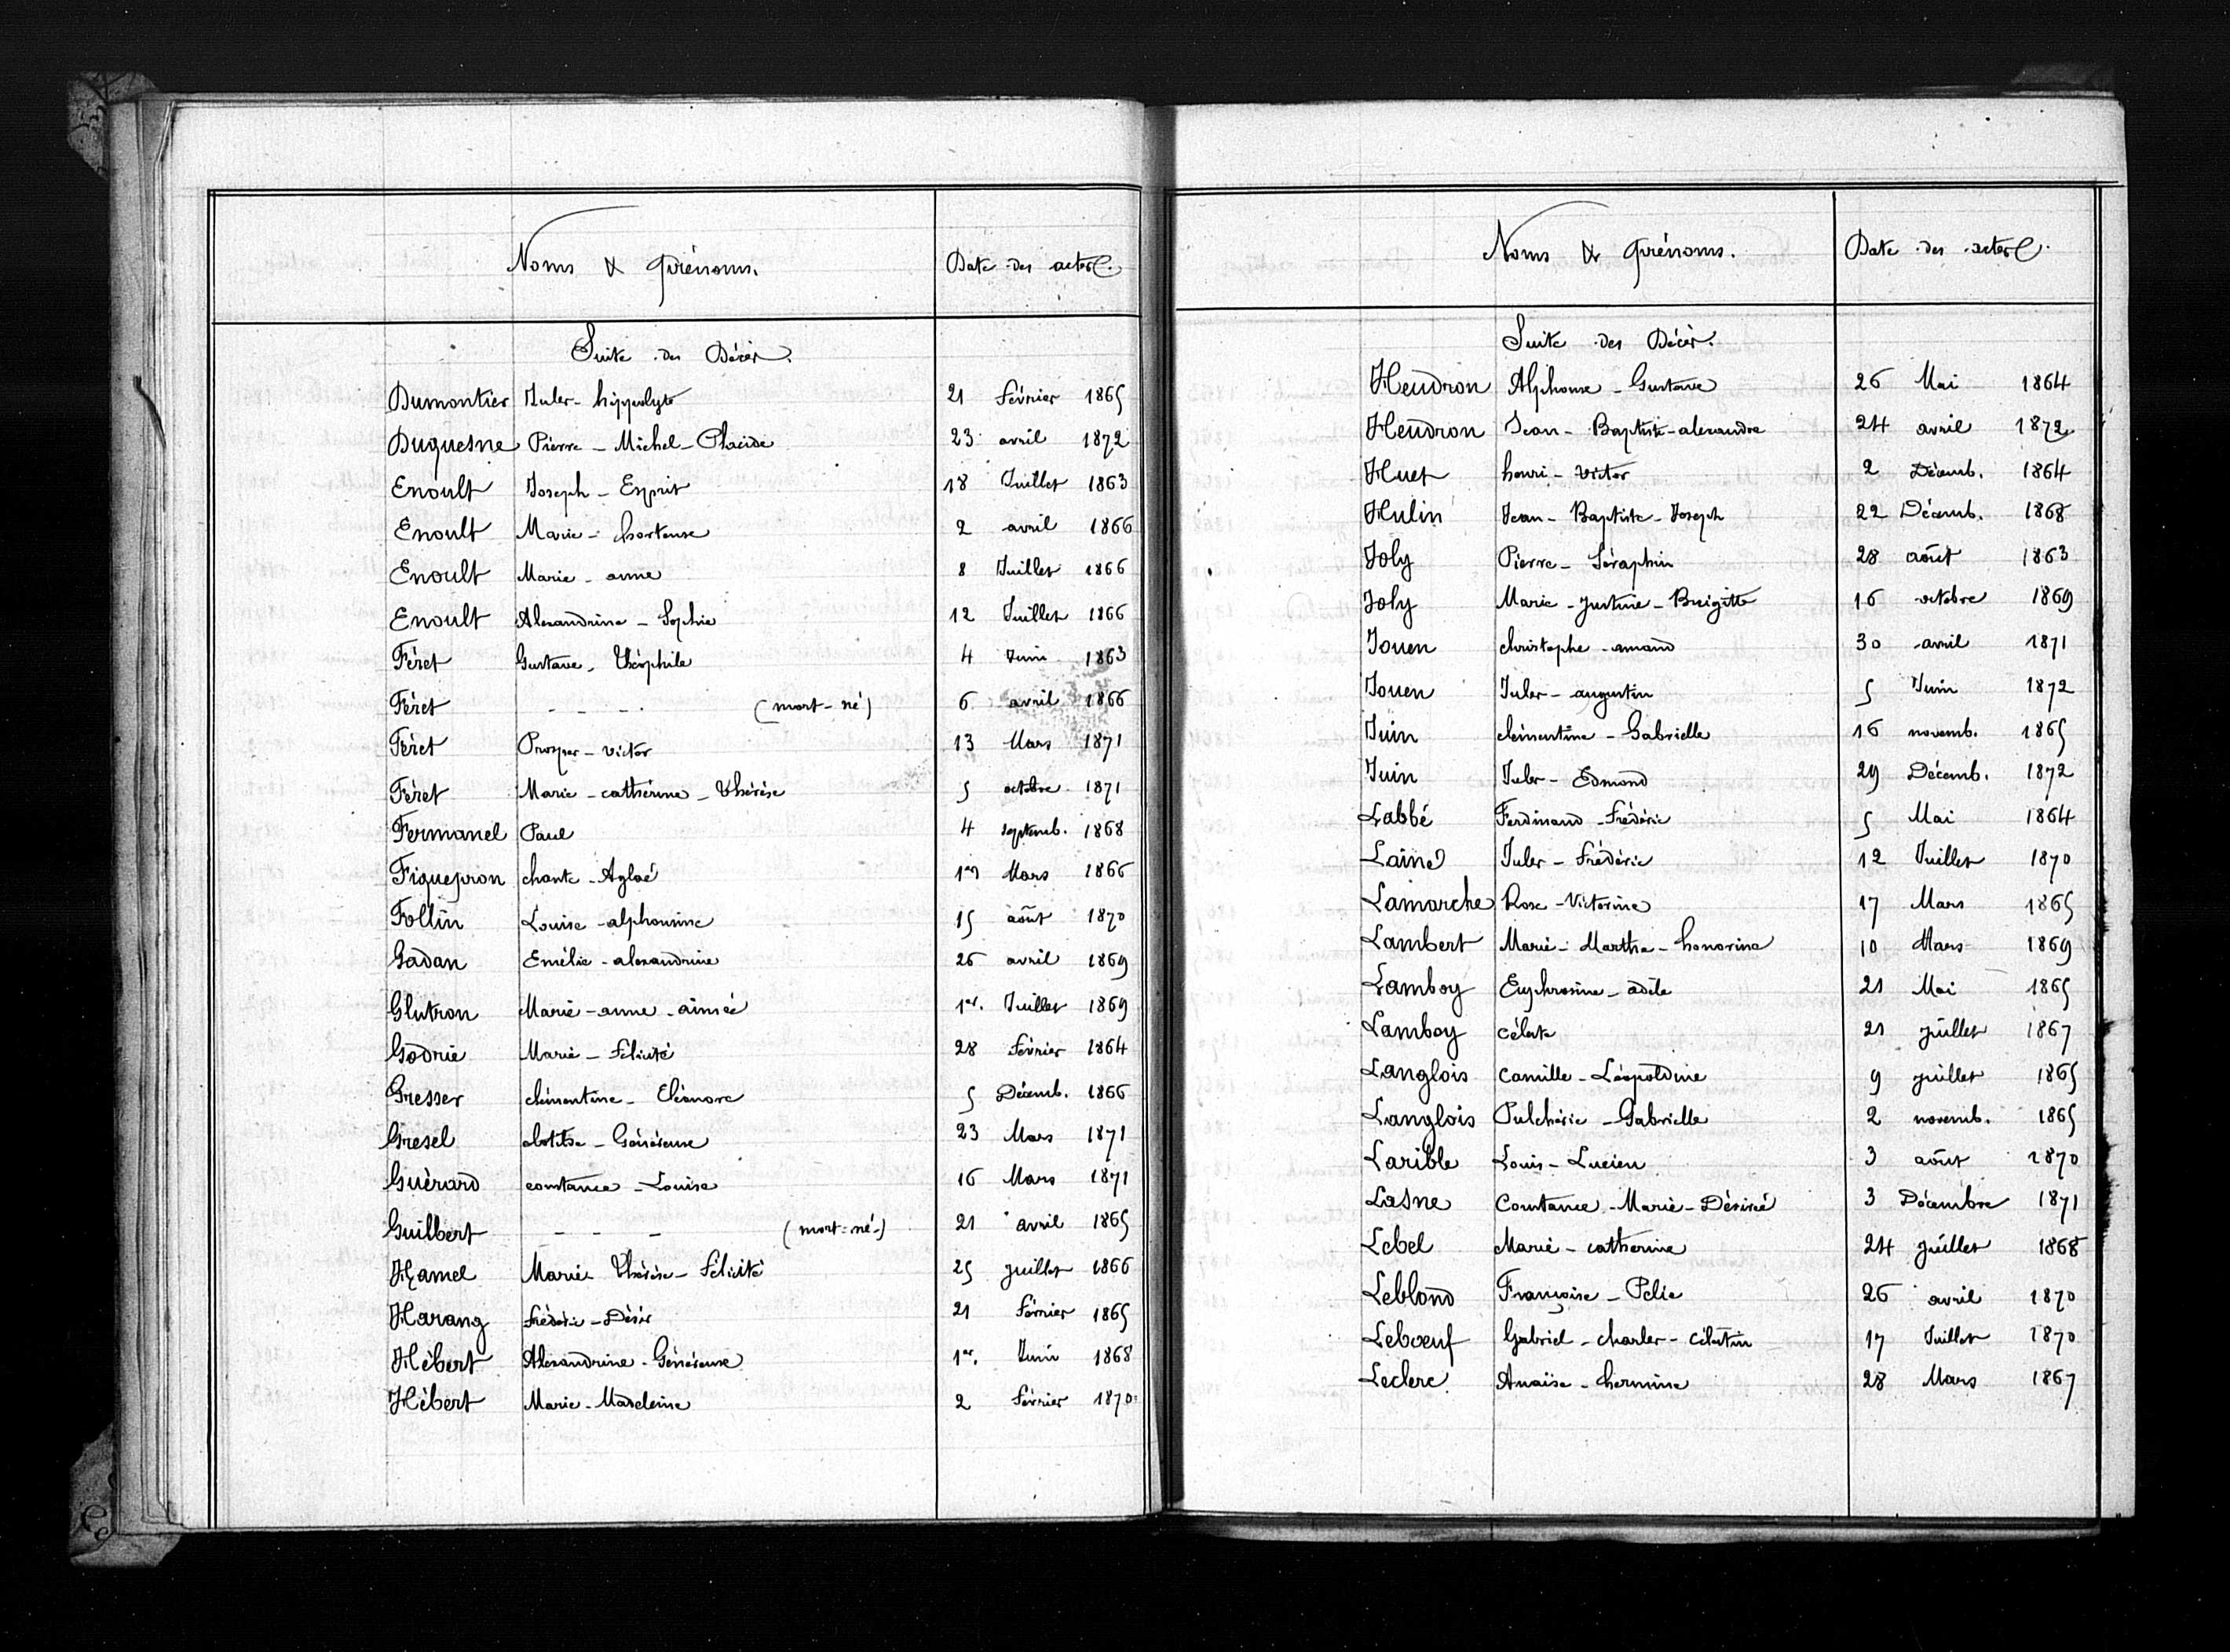 Noms & Prénoms. Date des actes.
Suite des Décès.
Dumontier Jules-hippolyte 21 Février 1865
Duquesne Pierre-Michel-Placide 23 avril 1872
Enoult Joseph-Esprit 18 Juillet 1863
Enoult Marie-hortense 2 avril 1866
Enoult Marie-anne 8 Juillet 1866
Enoult Alexandrine-Sophie 12 Juillet 1866
Féret Gustave-Théophile 4 Juin 1863
Féret - - - . (mort-né) 6 avril 1866
Féret Prosper-victor 13 Mars 1871
Féret Marie-catherine-Thérèse 5 octobre 1871
Fermanel Paul 4 septemb. 1868
Fiquepron chante-Aglaé 1er Mars 1866
Follin Louise-alphonsine 15 août 1870
Gadan Emélie-alexandrine 26 avril 1869
Glutron Marie-anne-aimée 1er. Juillet 1869
Godrie Marie-Félicité 28 Février 1864
Gresser clémentine-Eléonore 5 Décemb. 1866
Gresel clotilse-Généreuse 23 Mars 1871
Guérard constance-Louise 16 Mars 1871
Guilbert - - - (mort-né-) 21 avril 1865
Hamel Marie Thérèse-Félicité 25 juillet 1866
Harang frédéric-Désir 21 Février 1865
Hébert Alexandrine-Généreuse 1er. Juin 1868
Hébert Marie-Madeleine 2 Février 1870
Noms & Prénoms. Date des actes.
Suite des Décès.
Heudron Alphonse-Gustave 26 Mai 1864
Heudron Jean-Baptiste-alexandre 24 avril 1872
Huet henri-victor 2 Décemb. 1864
Hulin Jean-Baptiste-Joseph 22 Décemb. 1868
Joly Pierre-Séraphin 28 août 1863
Joly Marie-Justine-Brigitte 16 octobre 1869
Jouen christophe-amand 30 avril 1871
Jouen Jules-augustin 5 Juin 1872
Juin clémentine-Gabrielle 16 novemb. 1865
Juin Jules-Edmond 29 Décemb. 1872
Labbé Ferdinand-Frédéric 5 Mai 1864
Lainé Jules-Frédéric 12 Juillet 1870
Lamarche Rose-Victorine 17 Mars 1865
Lambert Marie-Marthe-honorine 10 Mars 1869
Lamboy Euphrosine-adèle 21 Mai 1865
Lamboy céleste 21 juillet 1867
Langlois Camille-Léopoldine 9 juillet 1865
Langlois Pulchérie-Gabrielle 2 novemb. 1865
Larible Louis-Lucien 3 août 1870
Lasne Constance-Marie-Désirée 3 Décembre 1871
Lebel Marie-catherine 24 juillet 1868
Leblond Françoise-Pelie 26 avril 1870
Leboeuf Gabriel-charles-célestin 17 Juillet 1870
Leclerc Anaïse-hermine 28 Mars 1867